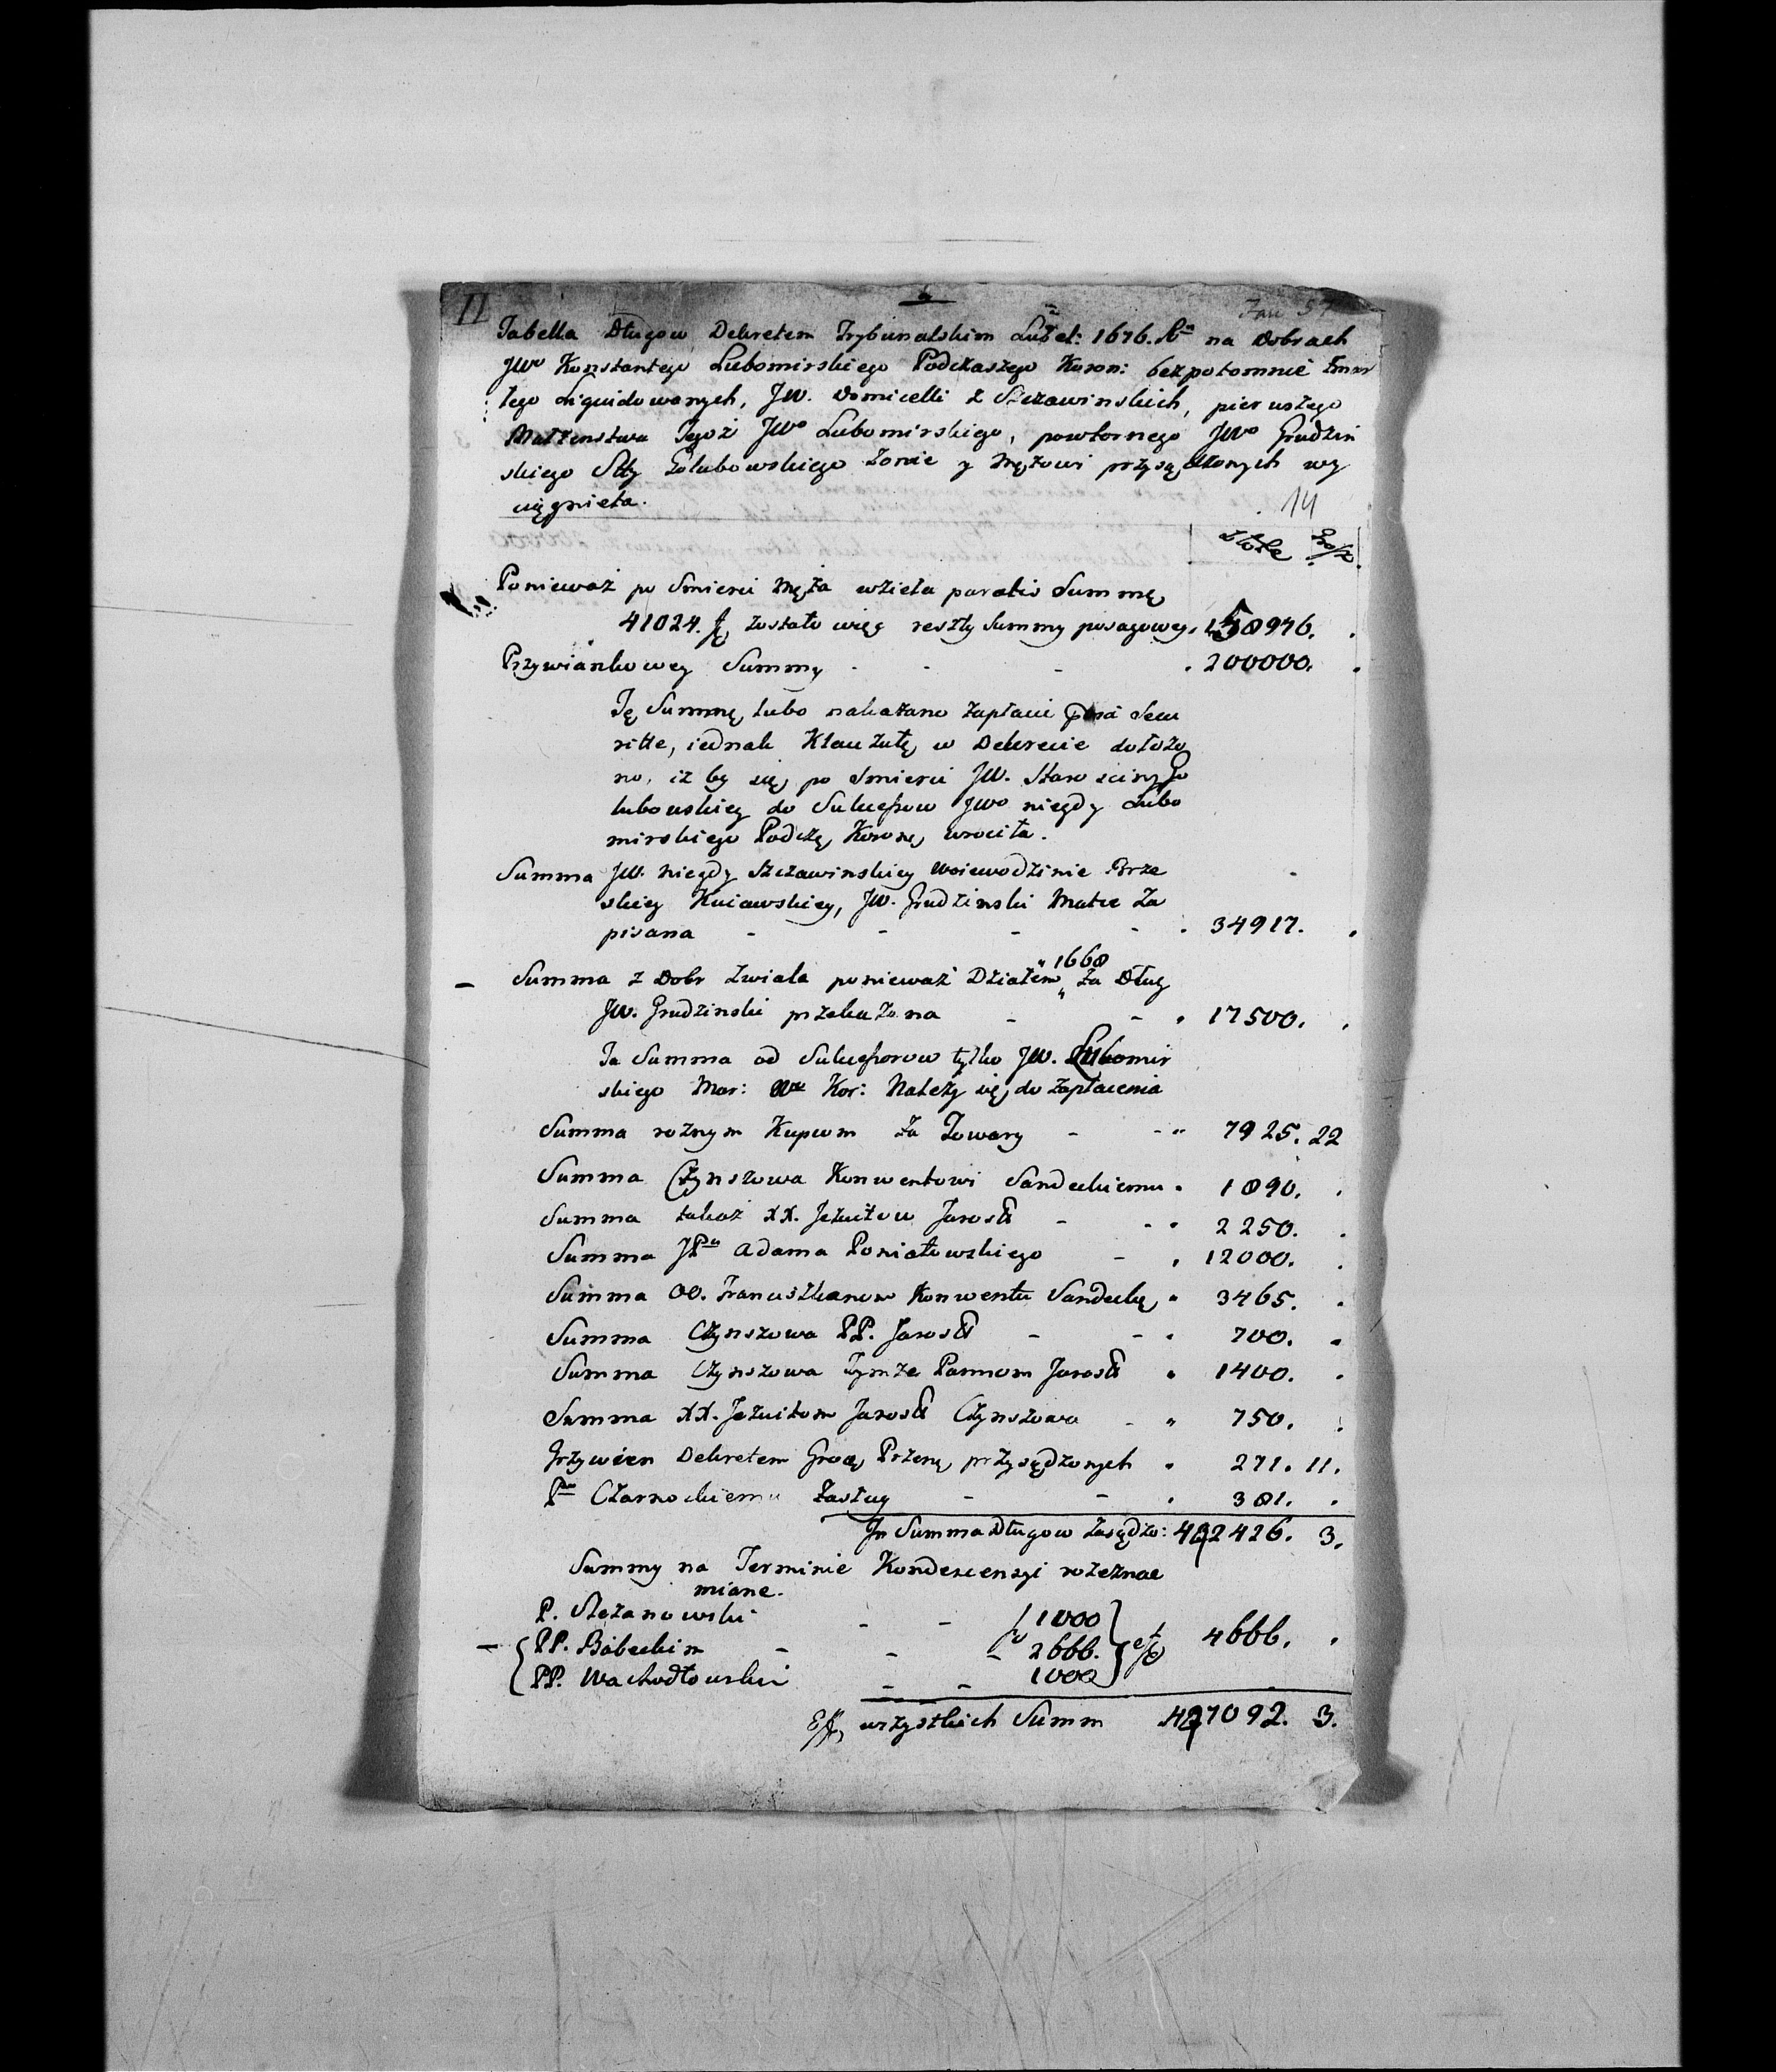 11
14
Tabella Długow Dekretem Trybunalskim Lubel: 1676. Rᵘ na Dobrach
JWᵒ Konstantego Lubomirskiego Podczaszego Koron: bezpotomnie zmar
łego Liquidowanych, JW. Domicelli z Szczawinskich, pierwszego
Małżenstwa Tegoż JWᵒ Lubomirskiego, powtornego JWᵒ Grudzin
skiego Stty Golubowskiego Zonie y Mężowi przysądzonych wy
ciągnięta.
Złote Gro/z
Ponieważ po Smierci Męża wzieła paratis Summę
41024. zostało więc reszty Summy posagowey. 158976.
Przywiankowey Summy - - - 200000.
Tę Summę lubo nakazano zapłacić secu
ritte, iednak Klauzulę w Dekrecie dołożo
no, iż by się po Smierci JW. Starosciny Go
lubowskiey do Sukcessorow JWᵒ niegdy Lubo
mirskiego Podczą Koronę wrociła.
Summa JW. niegdy Szczawinskiey Woiewodzinie Brze
skiey Kuiawskiey, JW. Grudzinski Matce za
pisana - - - - 34917.
Summa z Dobr Zwiala ponieważ Działem " 1668 " za Dług
JW. Grudzinski przekazana - - 17500.
Ta Summa od Sukcessorow tylko JW. Lubomir
skiego Mar: Wᵒ Kor: Należy się do zapłacenia
Summa roznym Kupcom za Towary - - " 7925. 22
Summa Czynszowa Konwentowi Sandeckiemu. 1890.
Summa takaż XX. Jezuitow Jarosł - - 2250.
Summa JPᵃ Adama Poniatowskiego - 12000.
Summa OO. Franciszkanow Konwentu Sandeckę 3465.
Summa Czynszowa PP. Jarosł - - 700.
Summa Czynszowa Tymże Pannom Jarosł 1400.
Summa XX. Jezuitom Jarosł Czynszowa - " 750.
Grzywien Dekretem Grodz Przemy przysądzonych 271. 11.
Pᵘ Czarnockiemu Zasług - - 381.
In Summa Długow zasądzo: 442426. 3.
Summy na Terminie Kondescensyi rozeznae
miane.
P. Stezanowski - - 1000
- PP. Bobeckim - - - 2666. 4666.
PP. Wachodłowski - - 1000
wszystkich Summ 447092. 3.